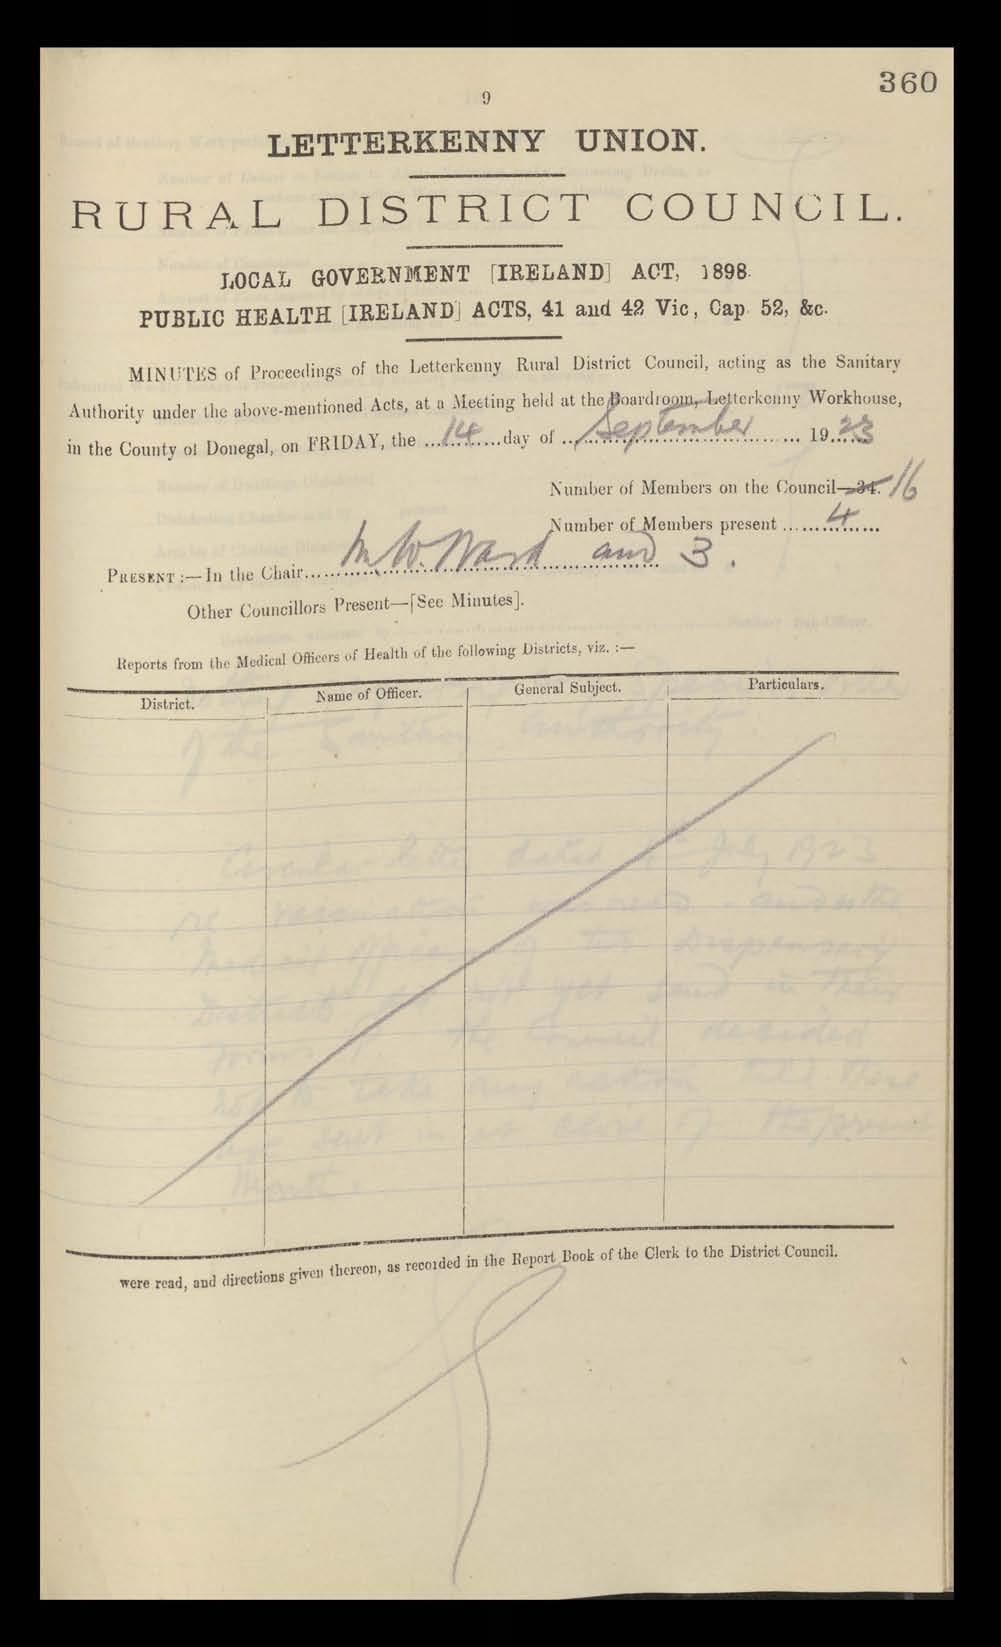 360
9
LETTERKENNY UNION.
RURAL DISTRICT COUNCIL.
LOCAL GOVERNMENT [IRELAND] ACT, 1898.
PUBLIC HEALTH [IRELAND] ACTS, 41 and 42 Vic, Cap. 52, &c.
MINUTES of Proceedings of the Letterkenny Rural District Council, acting as the Sanitary
Authority under the above-mentioned Acts, at a Meeting held at the Boardroom, Letterkenny Workhouse,
in the County of Donegal, on FRIDAY, the ...14...day of ...September... 19...23
Number of Members on the Council—34. 16
Number of Members present ...4...
PRESENT :—In the Chair...M W. Ward and 3.
Other Councillors Present—[See Minutes].
Reports from the Medical Officers of Health of the following Districts, viz. :—
District. Name of Officer. General Subject. Particulars.
of the Sanitary Authority.
Circular letter dated July 1923
re vaccination was read and as the
Medical Officers of the Dispensary
Districts did not yet send in their
forms the Council decided
not to take any action till these
are sent in at close of the present
month.
were read, and directions given thereon, as recorded in the Report Book of the Clerk to the District Council.